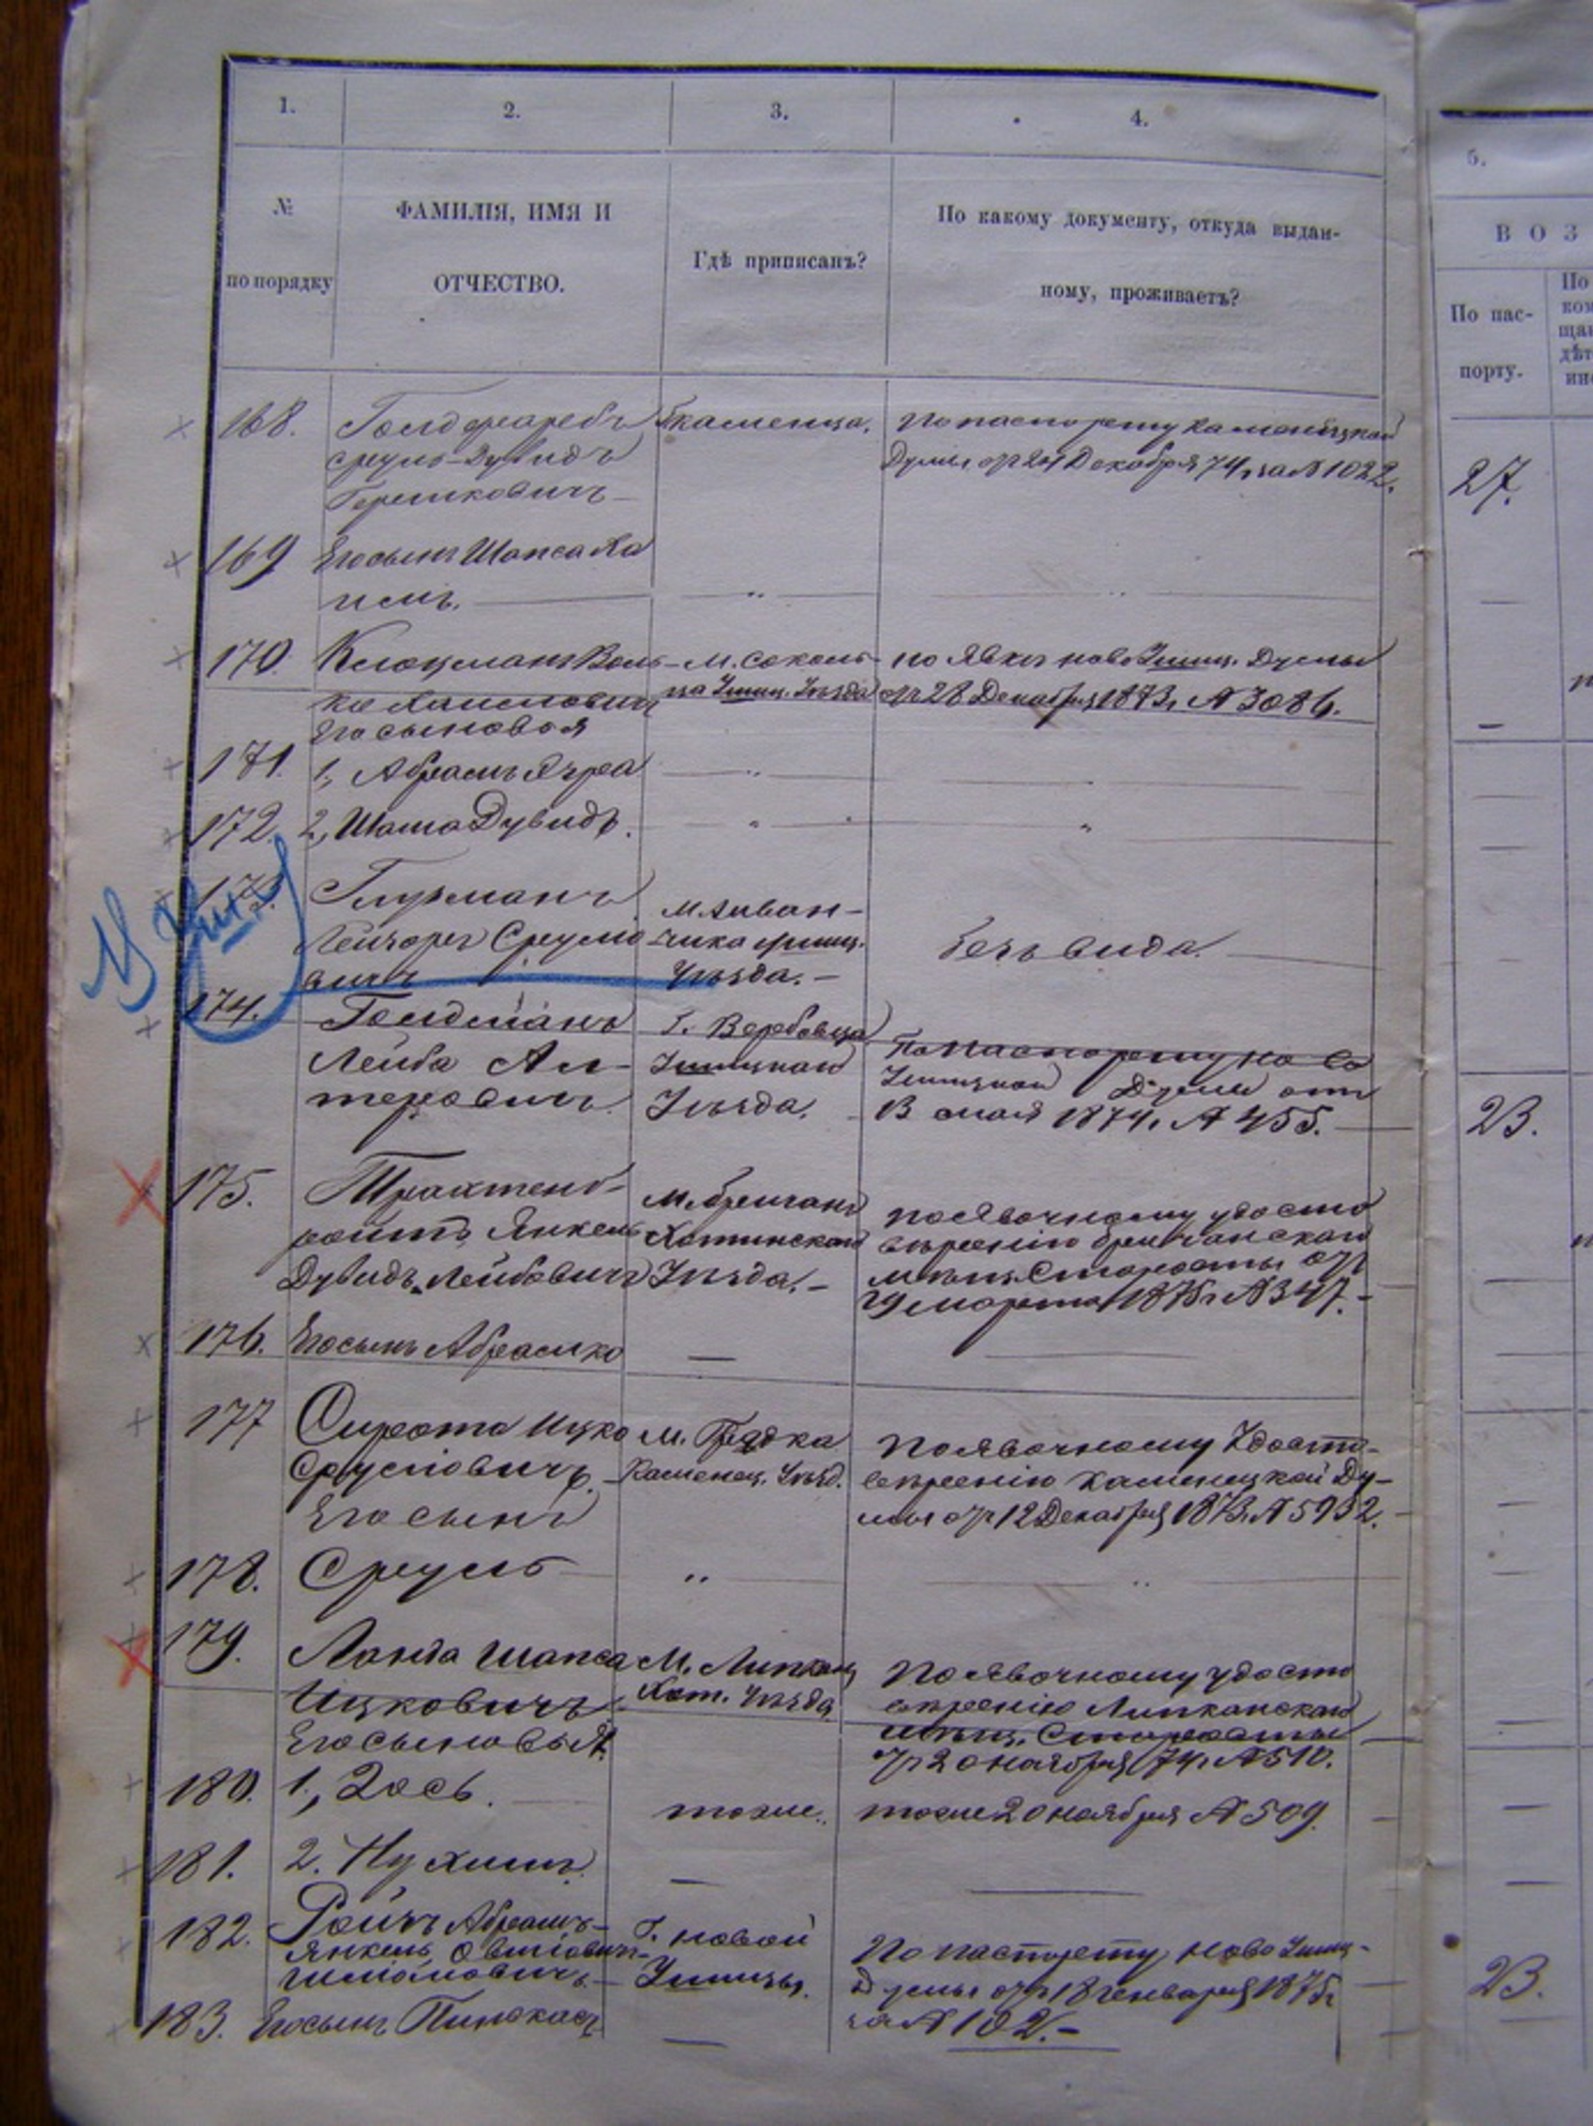 1.
2.
3.
4.
5.
№
по порядку
ФАМИЛІЯ, ИМЯ И
ОТЧЕСТВО.
Гдѣ приписанъ?
По какому документу, откуда выдан-
ному, проживаетъ?
В О З
По пас-
порту.
По
168.
Срулъ-Дувидъ
Гершковичъ
Каменца.
По паспорту Каменецкой
Думы от 24 Декабря 74 г. за № 1022.
27.
169
Его сынъ Шапса Ха
имъ.
170.
Клоцманъ Воль-
ко Хаимовичъ
Его сыновья
М. Соколь-
ца Ушиц. Уѣзда
по Явкѣ ново Ушиц. Думы
от 28 Декабря 1873 г. № 3086.
171.
1, Абрамъ
172.
2, Дувидъ.
Срулио
вичъ
Ушиц.
Уѣзда.
безъ вида.
174.
Гольдманъ
Лейба Ал-
теровичъ
Г. Вербовца
Ушицкой
Уѣзда.
По паспорту но во
Ушицкой Думы от
13 мая 1874 г. № 455.
23.
175.
Трахтенб-
ройтъ Янкель
Дувидъ Лейбовичъ
М. Бричанъ
Хотинского
Уѣзда.
по явочному удосто
вѣренію Бричанской
мѣщ. Старосты от
29 марта 1875 г. № 347.
176.
Его сынъ Абрамко
177
Сирота Ицко
Сруловичъ
Его сынъ
М. Грудка
Каменец. Уѣзд.
По явочному Удосто-
вѣренію Каменецкой Ду-
мы от 12 Декабря 1873 г. № 5932.
178.
Сруль
179.
Ланда Шапса
Ицковичъ
Его сыновья
М. Липканъ
Хот. Уѣзда
По явочному удосто
вѣренію Липканской
мѣщ. Старосты
от 20 ноября 74 г. № 510.
180.
1, Зось.
тоже
тоже 20 ноября № 509.
181.
2. Нухимъ
182.
Ройзъ Абрамъ-
Янкель
Г. Новой
Ушицы.
По паспорту Ново Ушиц-
Думы от 18 Генваря 1875 г.
за № 102.
23.
183.
Его сынъ Пинкасъ